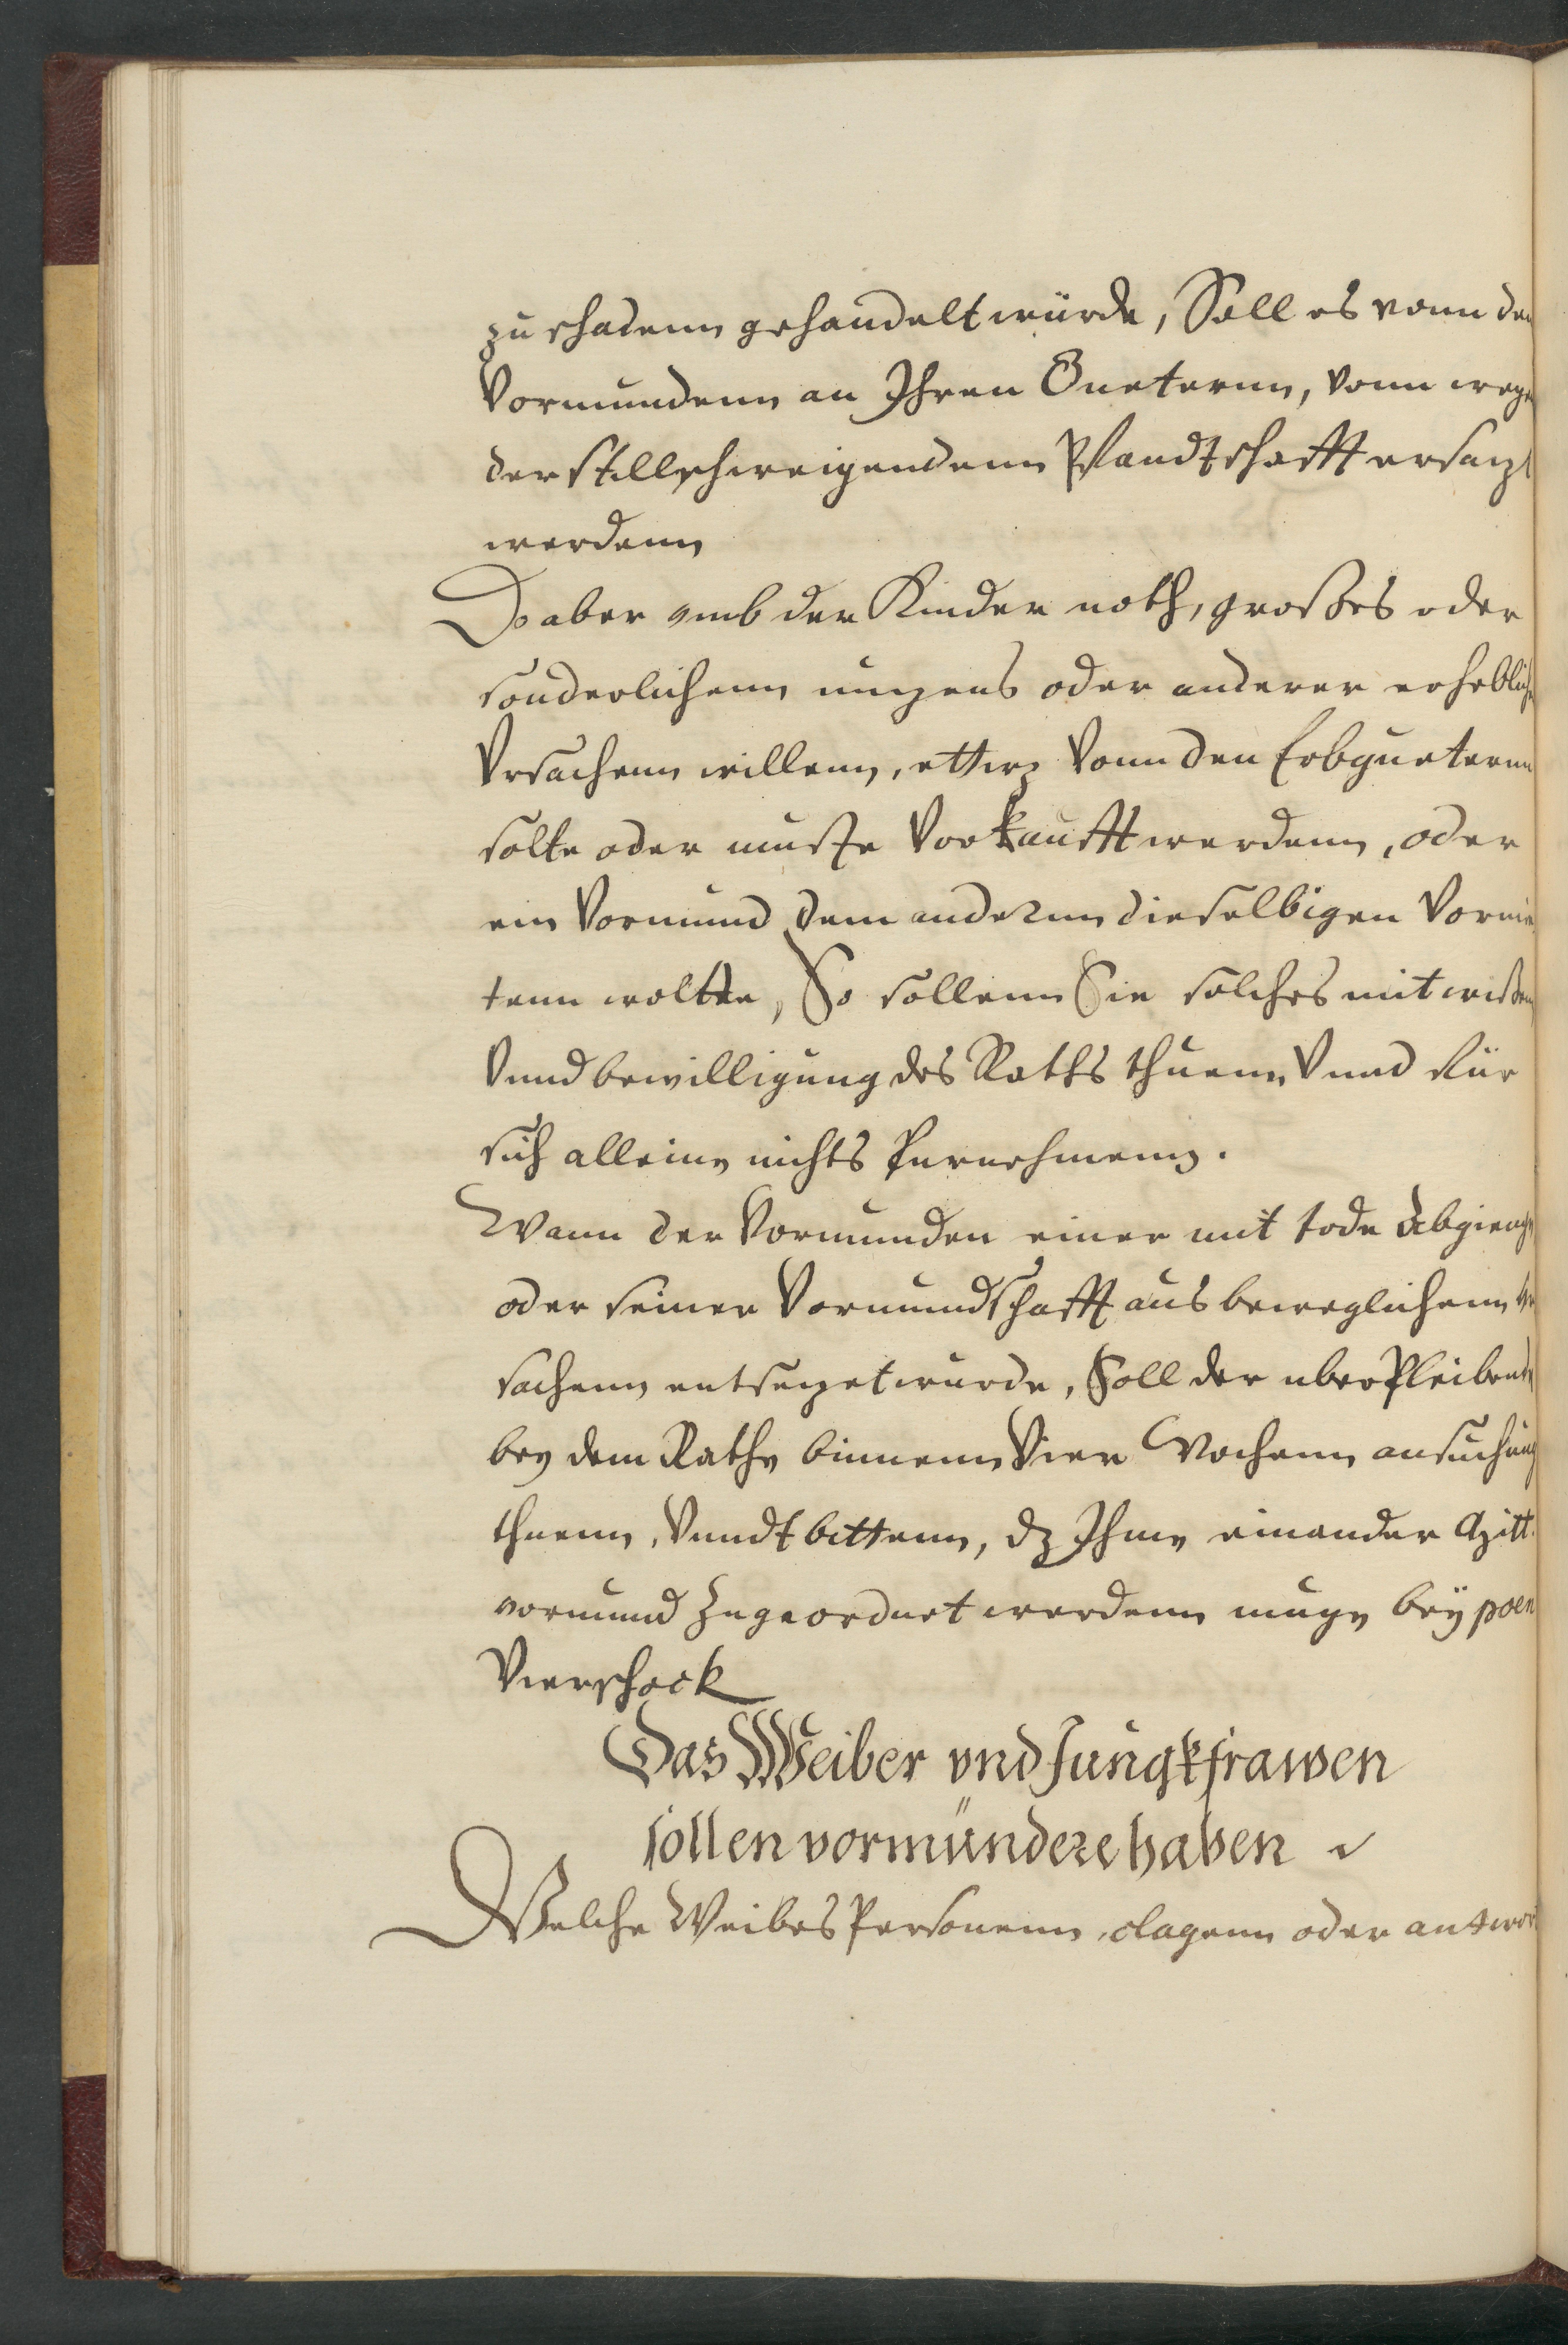 zu schadenn gehandelt würde, Soll es vonn den
Vormundenn an Ihren Gueternn, vonn wegen
der stillschweigendenn Pfandtschafft ersazt
werdenn
Do aber vmb der Kinder noth, großes oder
sonderlichenn nuzens oder anderer erheblichen
Vrsachenn willenn, ettwz Vonn den Erbgueternn
solte oder muste Vorkaufft werdenn, oder
ein Vormund dem andernn dieselbigen Vormie
tenn woltte, So sollenn Sie solches mit wißen
Vnnd bewilligung des Raths thuenn Vnnd für
sich alleine nichts furnehmenn.
Wann der Vormunden einer mit tode abgienge
oder seiner Vormundschafft aus beweglichenn Vr
sachenn entsezet wurde, Soll der uberpleibende
bey dem Rathe binnenn Vier Wochenn ansuchung
thuenn, Vnndt bittenn, dz Ihme ein ander Mitt
vormund zugeordnet werdenn muge bey poen
Vier schock
Das Weiber vnd Jungkfrawen
sollen vormündere haben
Welche Weibes Personenn clagenn oder antwor